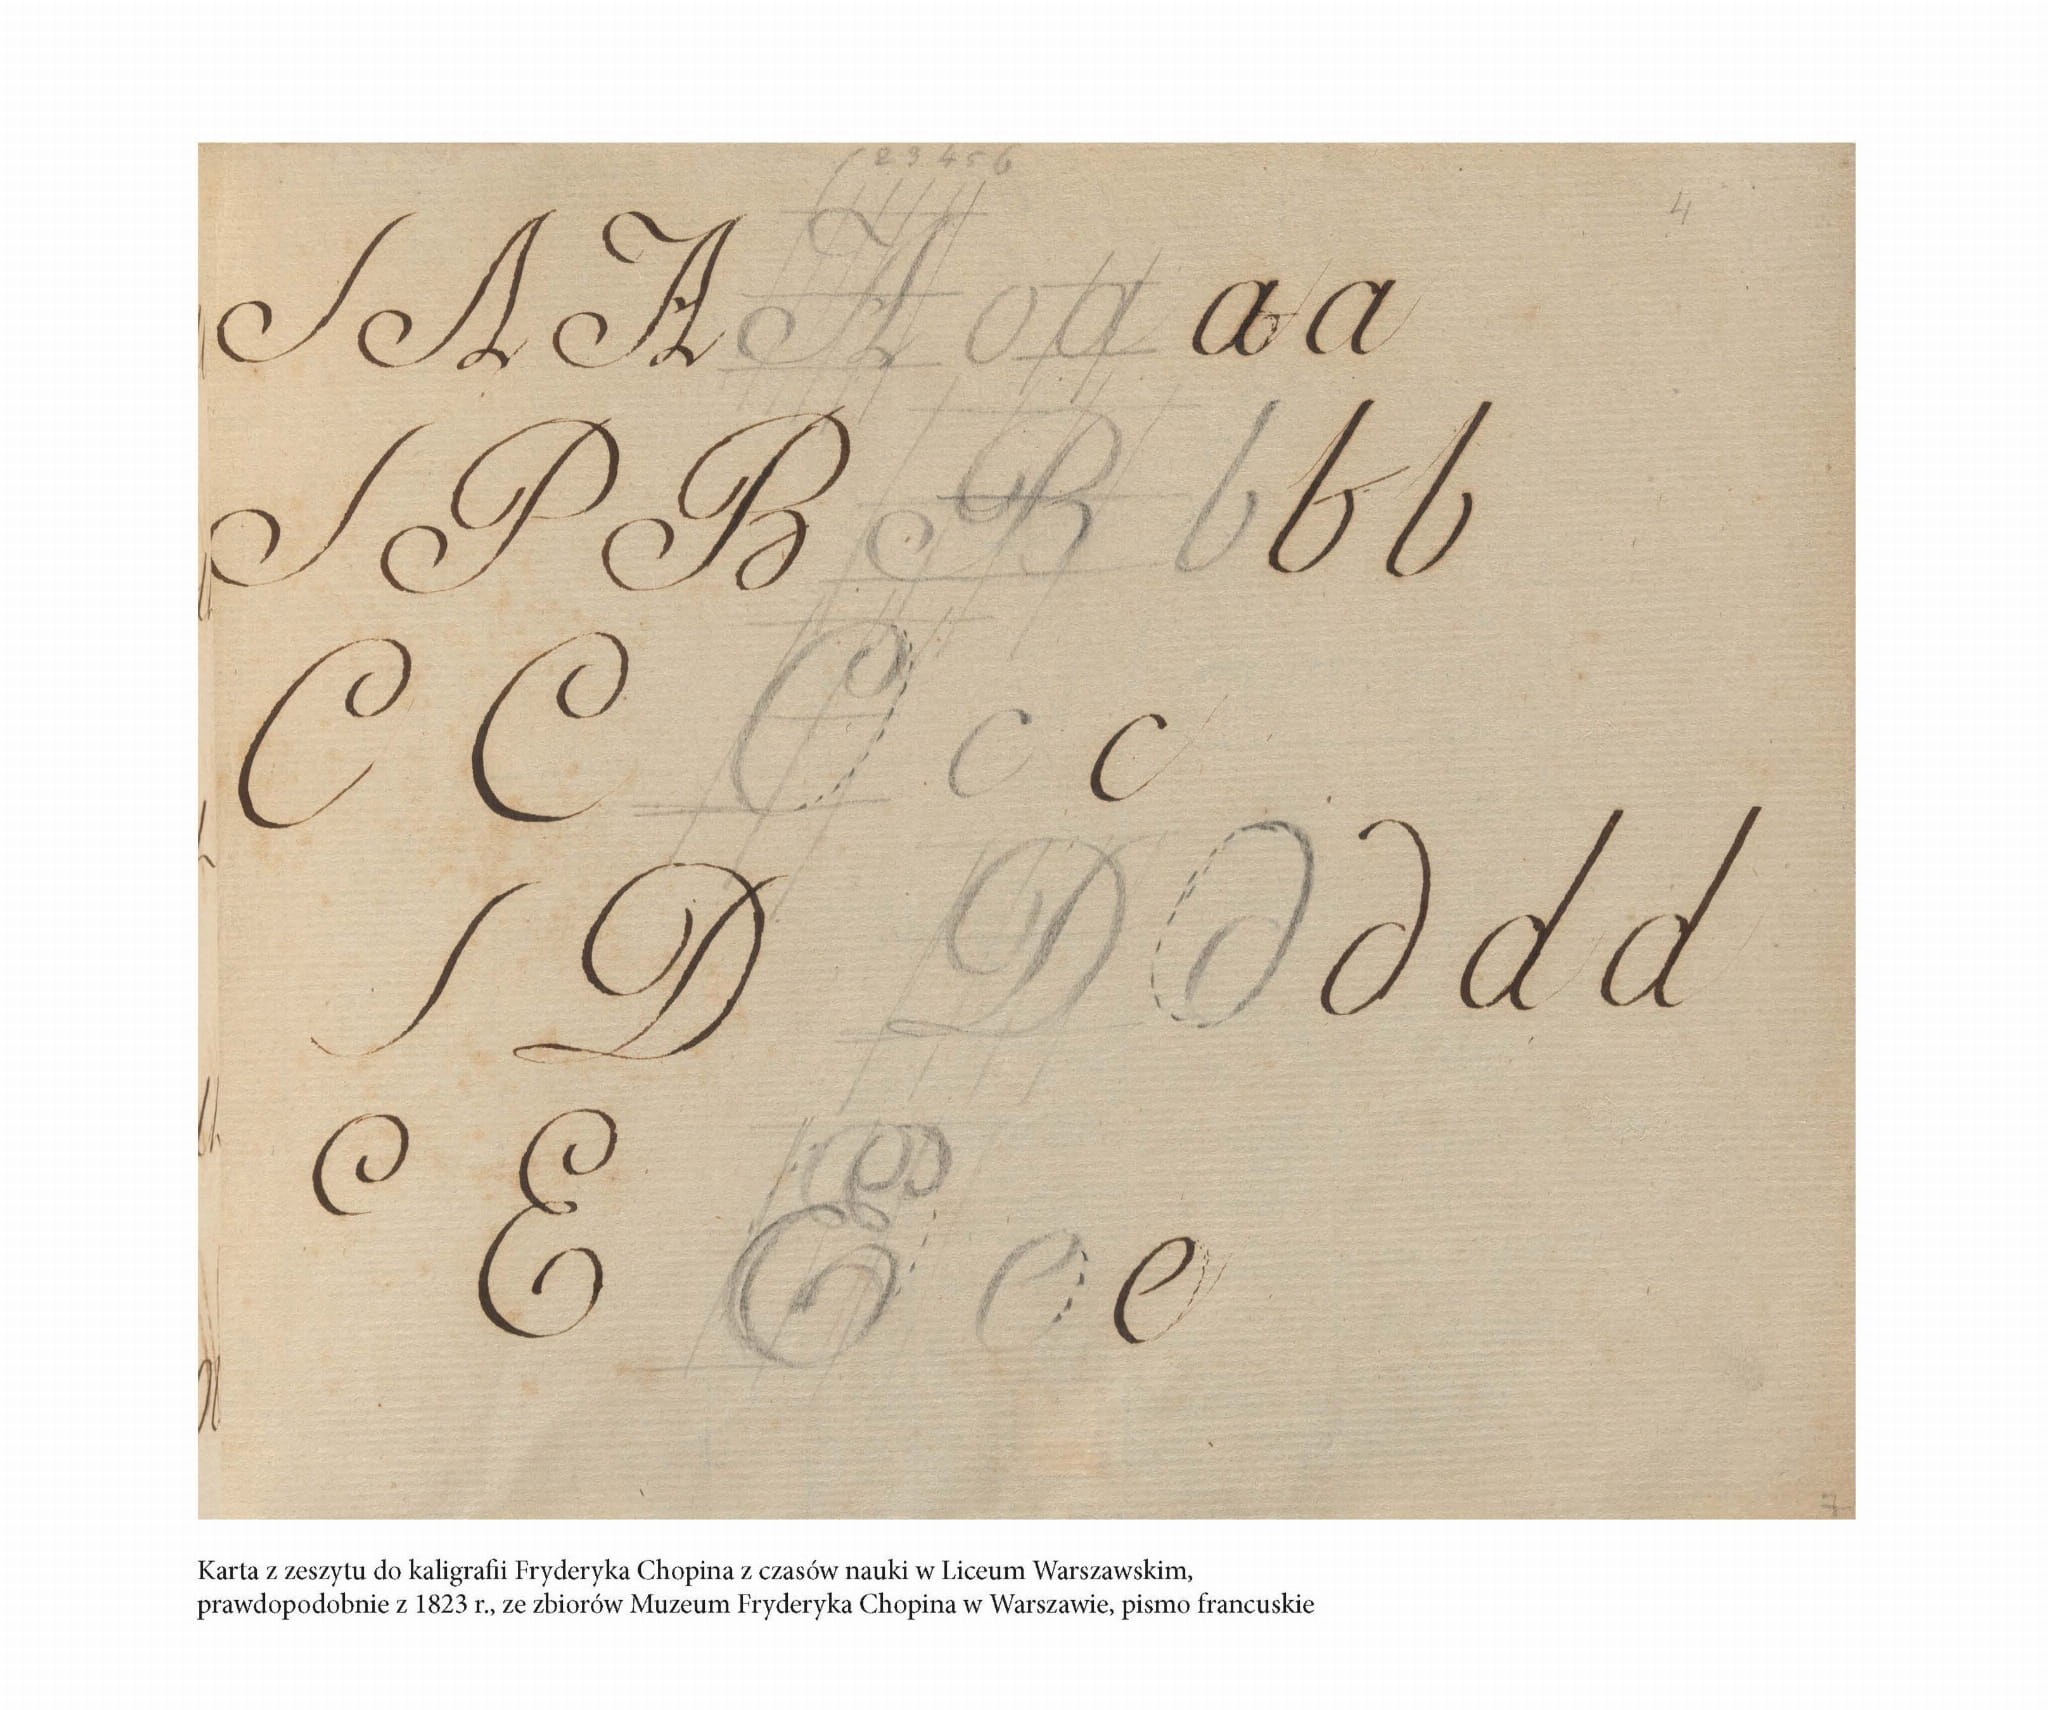 23456
4
S A A A o a a a
S P B B b b b
C C C c c
S D D ∂ ∂ d d
C E E e e
7
Karta z zeszytu do kaligrafii Fryderyka Chopina z czasów nauki w Liceum Warszawskim,
prawdopodobnie z 1823 r., ze zbiorów Muzeum Fryderyka Chopina w Warszawie, pismo francuskie